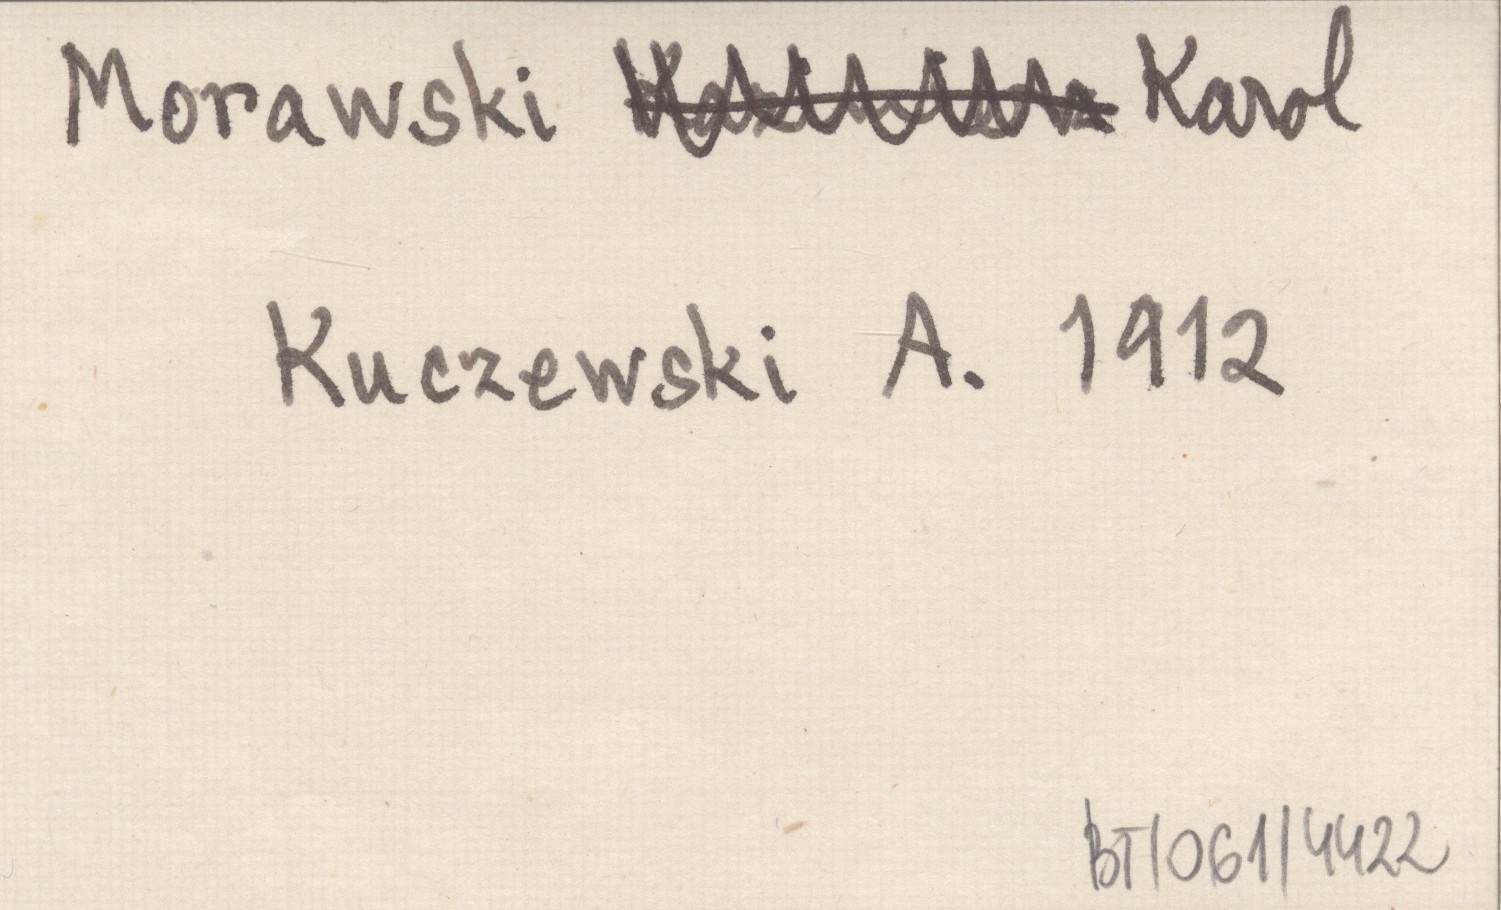 Morawski Karol
Kuczewski A. 1912
BT/061/4422